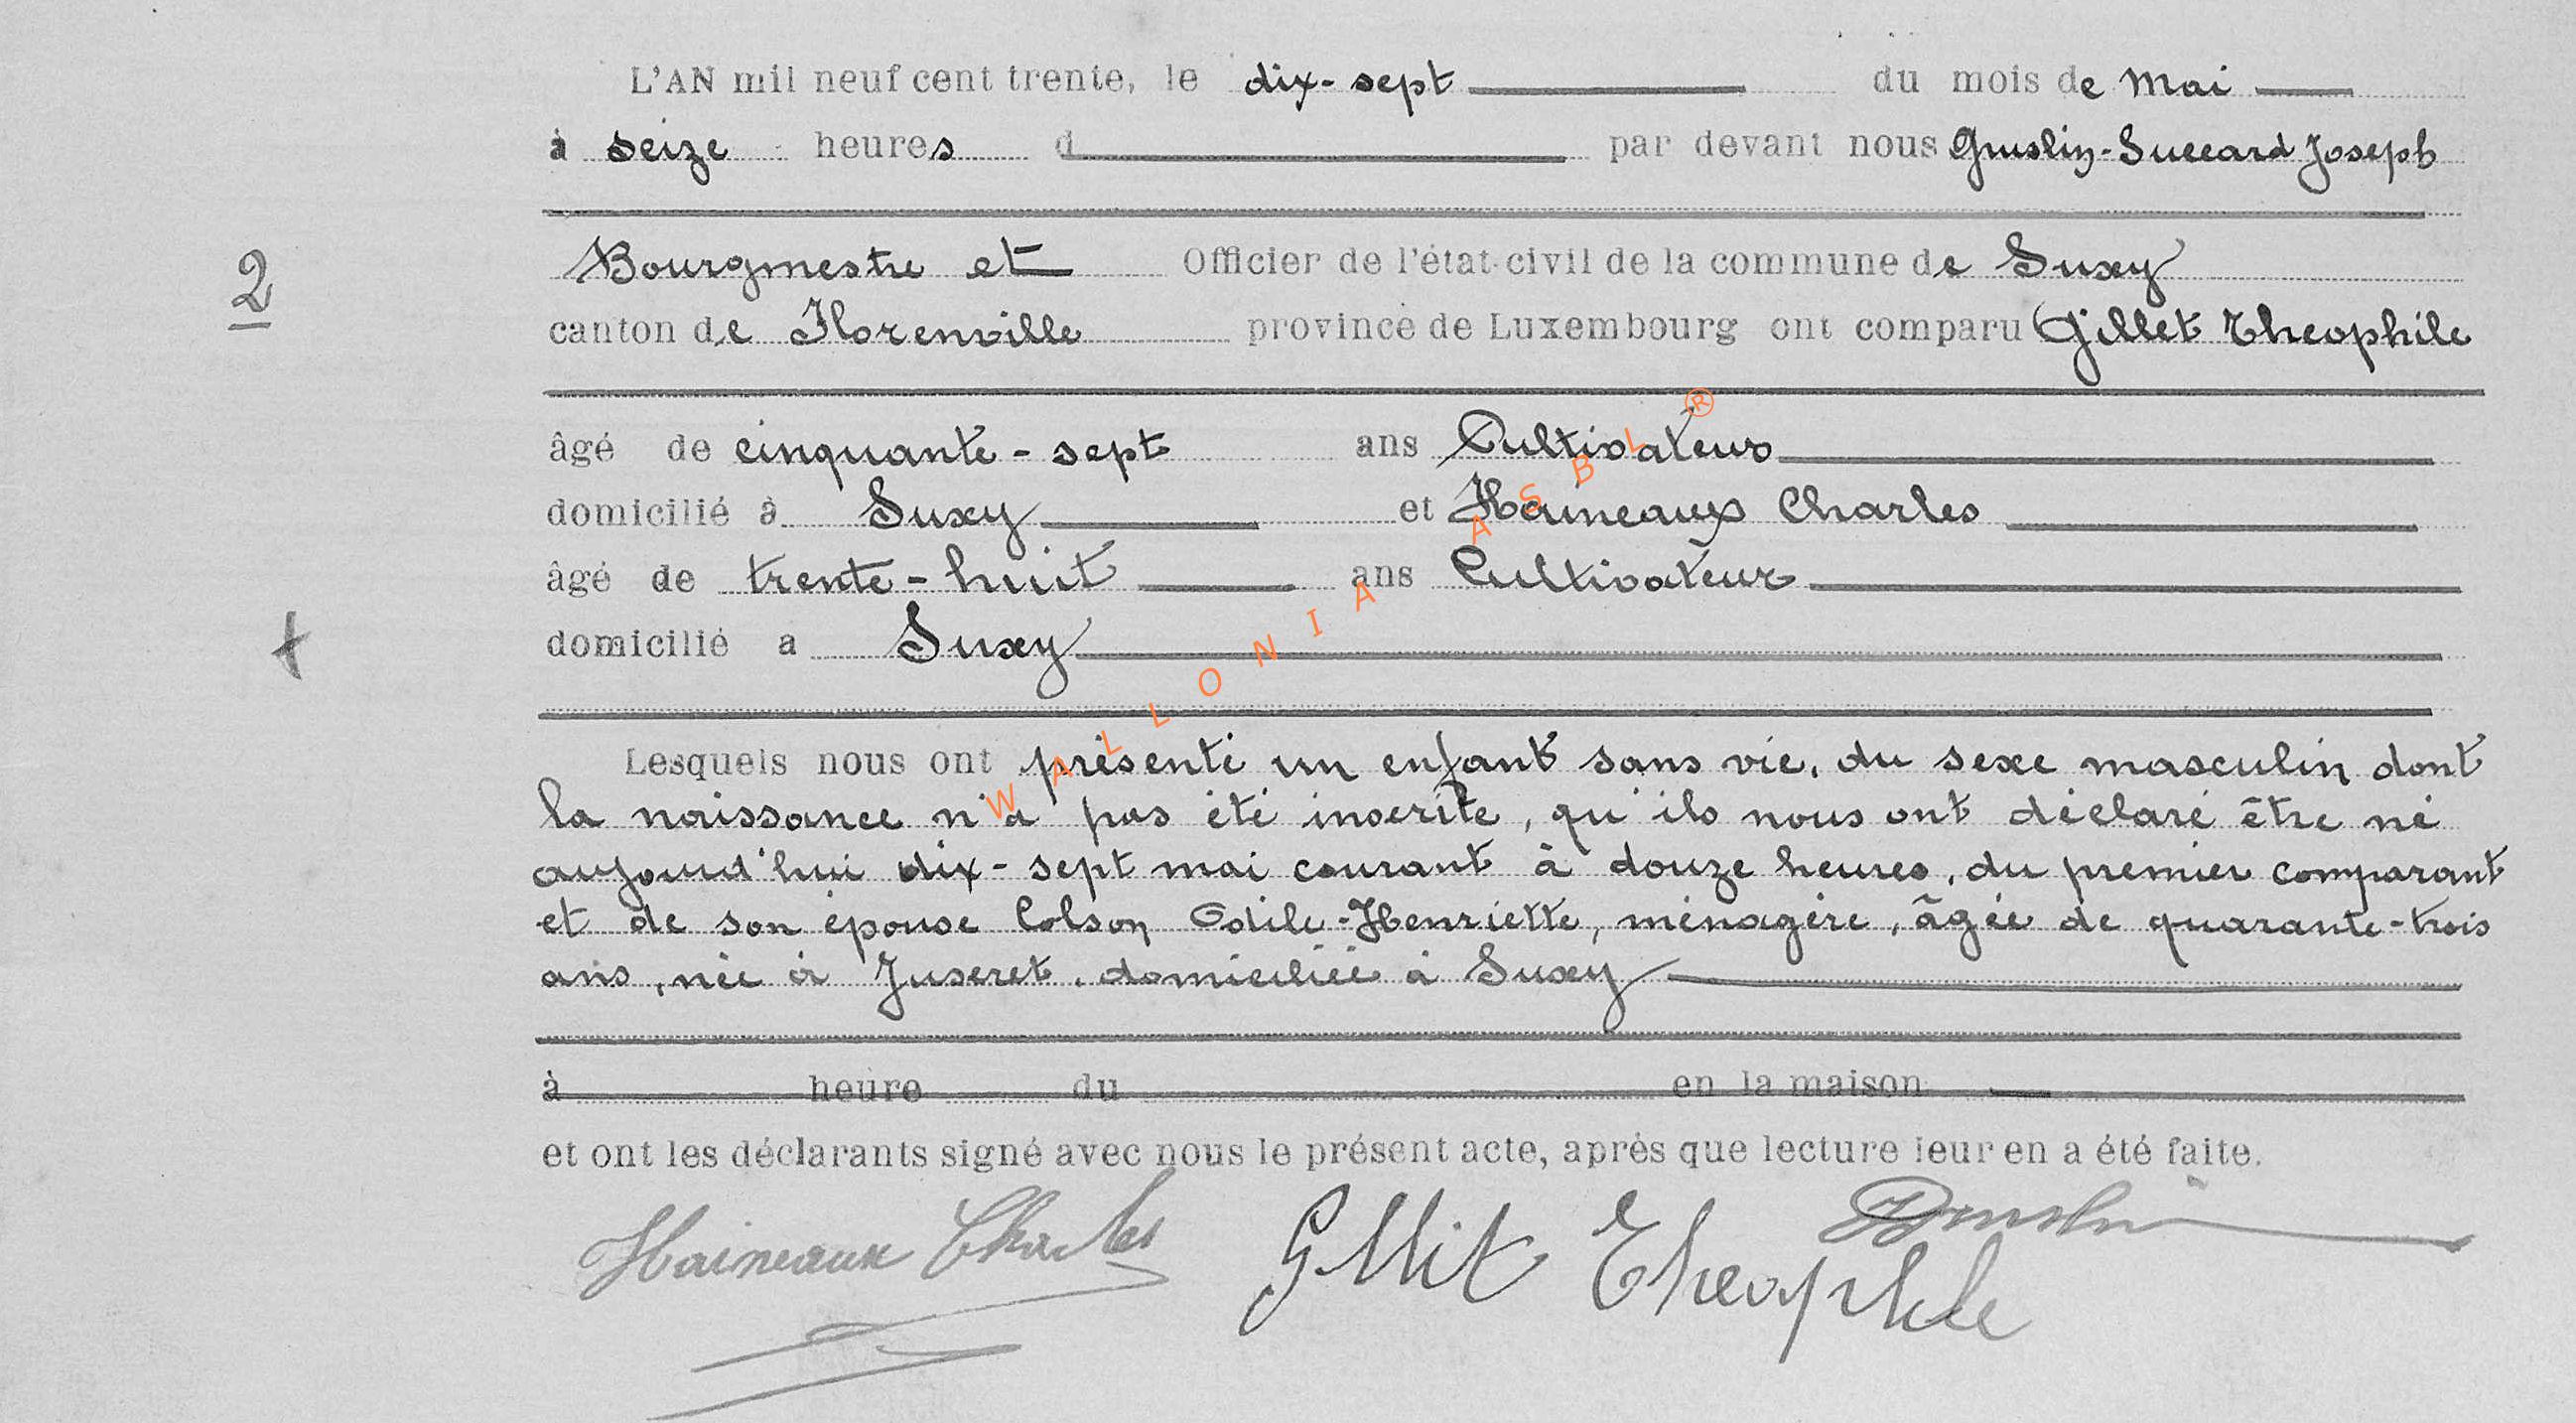 L'AN mil neuf cent trente, le dix-sept du mois de Mai
à seize heures d par devant nous Gruslin-Succard Joseph
Bourgmestre et Officier de l'état-civil de la commune de Suxy
2
canton de Florenville province de Luxembourg ont comparu Gillet Theophile
âgé de cinquante-sept ans Cultivateur
domicilié à Suxy et Haineaux Charles
âgé de trente-huit ans Cultivateur
domicilié a Suxy
Lesquels nous ont présenté un enfant sans vie, du sexe masculin dont
la naissance n'a pas été inscrite, qu'ils nous ont déclaré être né
aujourd'hui dix-sept mai courant à douze heures, du premier comparant
et de son épouse Colson Odile-Henriette, ménagère, âgée de quarante-trois
ans, née à Juseret, domiciliée à Suxy
à heure du en la maison
et ont les déclarants signé avec nous le présent acte, après que lecture leur en a été faite.
Haineaux Charles Gillet Theophile Gruslin
WALLONIA ASBL ®